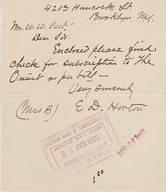 421a Hancock St
Brooklyn Ny.
Mr. W. W.
Dear Sir
Enclosed please find
check for subscription to the
Orient as per bill —
Very Sincerely
(Mrs B) E. D. Horton
1912
1.00